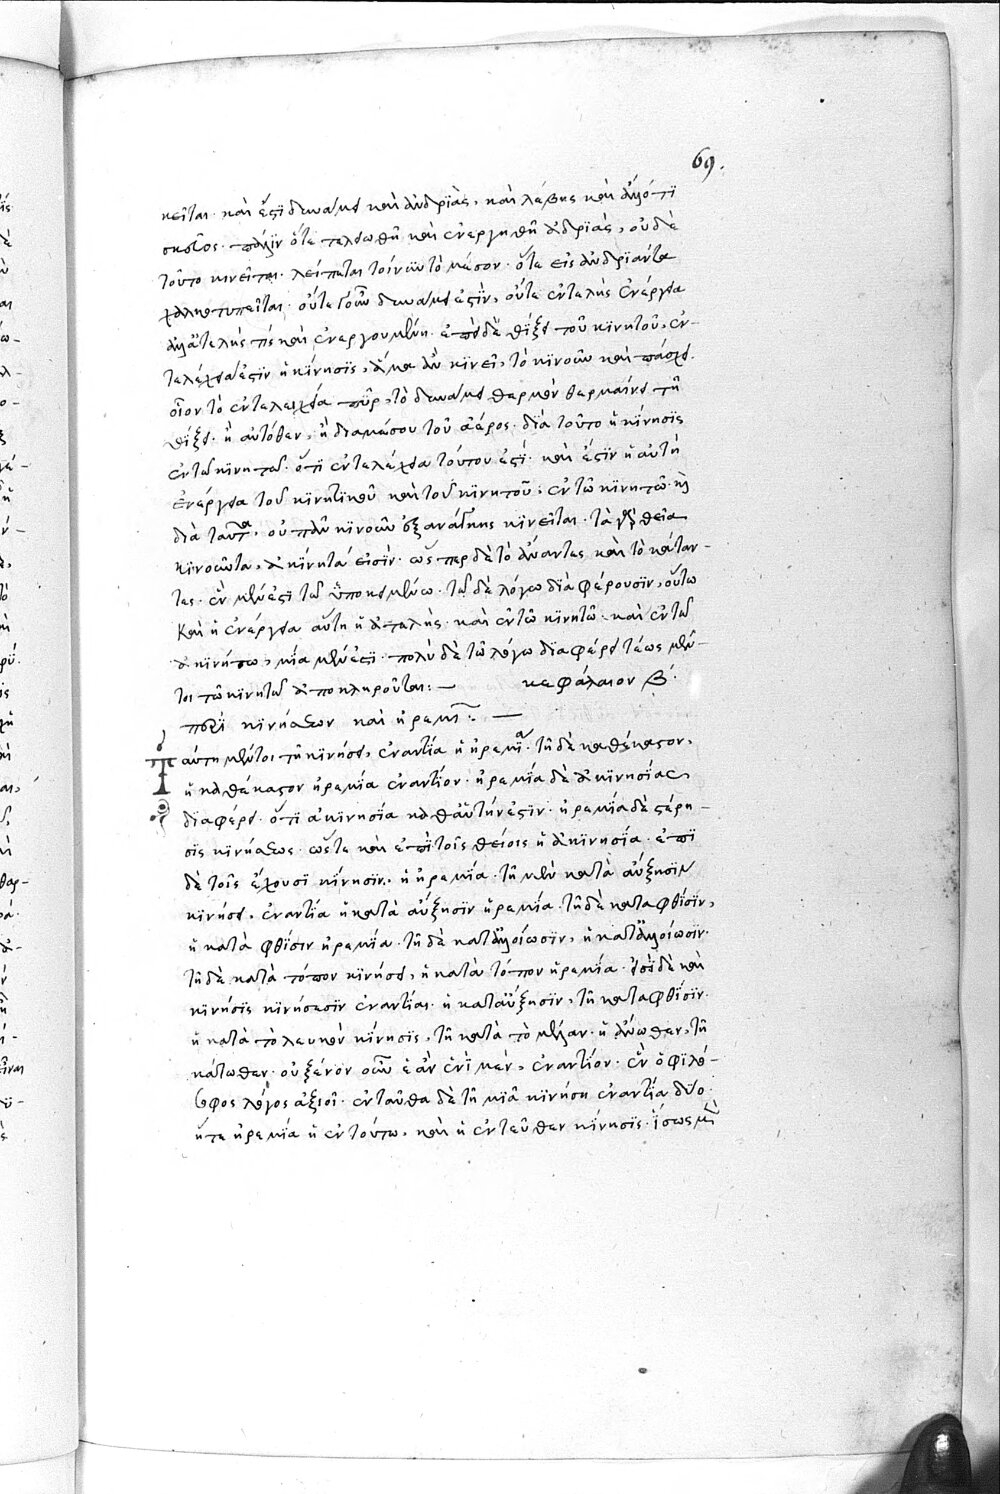 69.
κεῖται· καὶ ἔστι δυνάμει καὶ ἀνδριὰς, καὶ λέβης καὶ ἄλλό τι
σκεῦος· πάλιν ὅτε τελεωθῆ καὶ ἐνεργηθῆ ἀνδριὰς, οὐδὲ
τοῦτο κινεῖται· λείπεται τοίνυν τὸ μέσον· ὅτε εἰς ἀνδριάντα
χαλκοτυπεῖται· οὔτε γοῦν δυνάμει ἐστὶν, οὔτε ἐντελὴς ἐνέργεια
ἀλλ' ἀτελής τις καὶ ἐνεργουμένη· ἐπεὶ δὲ θίξει τοῦ κινητοῦ, ἐν-
τελέχεια ἐστιν ἡ κίνησις, ἅμα ἂν κινεῖ, τὸ κινοῦν καὶ πάσχει·
οἷον τὸ ἐντελεχεία πῦρ, τὸ δυνάμει θερμὸν θερμαίνει τῆ
θίξει· ἢ αὐτόθεν, ἢ διαμέσου τοῦ ἀέρος· διὰ τοῦτο ἡ κίνησις
ἐν τῶ κινητῶ· ὅτι ἐντελέχεια τούτου ἐστί· καὶ ἔστιν ἡ αὐτὴ
ἐνέργεια τοῦ κινητικοῦ καὶ τοῦ κινητοῦ· ἐν τῶ κινητῶ· καὶ
διὰ ταῦτα, οὐ πᾶν κινοῦν ἐξανάγκης κινεῖται· τὰ γὰρ θεῖα
κινοῦντα, ἀκίνητά εἰσιν· ὥσπερ δὲ τὸ ἄναντες καὶ τὸ κάταν-
τες· ἓν μέν ἐστι τῶ ὑποκειμένω· τῶ δὲ λόγω διαφέρουσιν, οὕτω
καὶ ἡ ἐνέργεια αὕτη ἡ ἀτελὴς· καὶ ἐν τῶ κινητῶ· καὶ ἐν τῶ
ἀκινήτω, μία μέν ἐστι· πολὺ δὲ τῶ λόγω διαφέρει τέως μέν-
τοι τῶ κινητῶ ἀποκληροῦται:— κεφάλαιον β΄.
περὶ κινήσεων καὶ ἠρεμι :—
Ταύτη μέντοι τῆ κινήσει, ἐναντία ἡ ἠρεμία· τῆ δὲ καθέκαστον,
ἡ καθέκαστον ἠρεμία ἐναντίον· ἠρεμία δὲ ἀκινησίας
διαφέρει· ὅτι ἀκινησία καθ' αὑτήν ἐστιν· ἠρεμία δὲ στέρη-
σις κινήσεως· ὥστε καὶ ἐπὶ τοῖς θείοις ἡ ἀκινησία· ἐπὶ
δὲ τοῖς ἔχουσι κίνησιν· ἡ ἠρεμία· τῆ μὲν κατὰ αὔξησιν
κινήσει, ἐναντία ἡ κατὰ αὔξησιν ἠρεμία· τῆ δὲ κατα φθίσιν,
ἡ κατὰ φθίσιν ἠρεμία· τῆ δὲ κατ' ἀλλοίωσιν, ἡ κατ' ἀλλοίωσιν·
τῆ δὲ κατὰ τόπον κινήσει, ἡ κατὰ τόπον ἠρεμία· ἐπεὶ δὲ καὶ
κινήσις κινήσεσιν ἐναντίαι· ἡ κατ' αὔξησιν, τῆ κατα φθίσιν·
ἡ κατὰ τὸ λευκὸν κίνησις, τῆ κατὰ τὸ μέλαν· ἡ ἄνωθεν, τῆ
κάτωθεν· οὐ ξένον οὖν ἐὰν ἑνὶ μὲν, ἐναντίον· ἓν ὁ φιλό-
σοφος λόγος ἀξιοῖ· ἐνταῦθα δὲ τῆ μιᾶ κινήση ἐναντία δύο·
ἥτε ἠρεμία ἡ ἐν τούτω, καὶ ἡ ἐντεῦθεν κίνησις· ἴσως μὲν